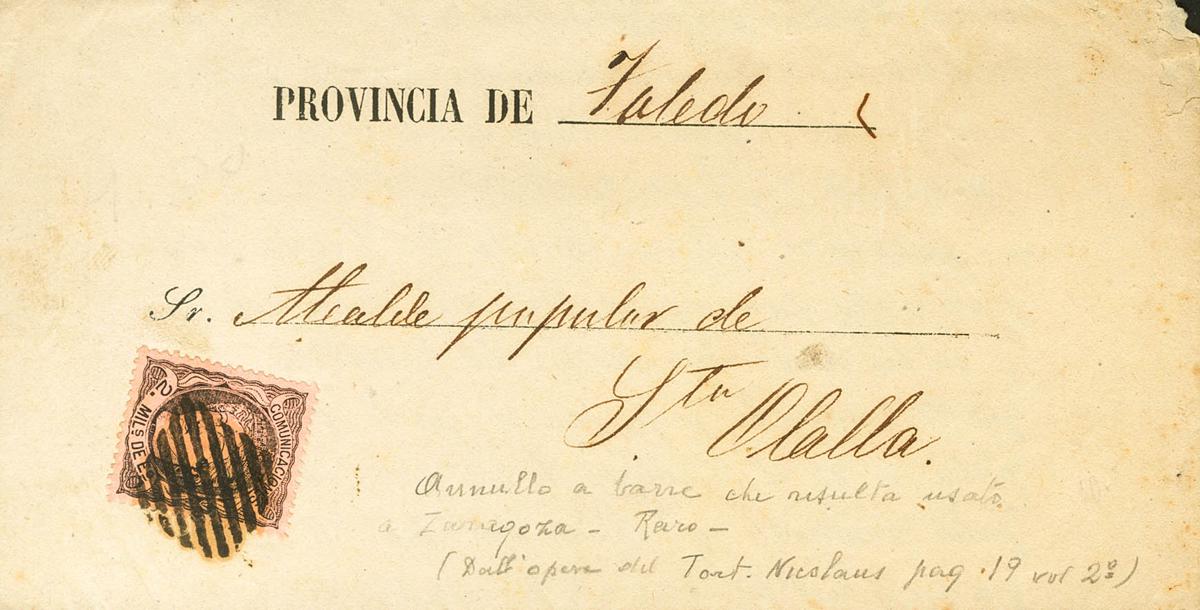 PROVINCIA DE Toledo
Sr. Alcalde popular de
Sta Olalla.
2. MILS DE ES
COMUNICACION
Annullo a barre che risulta usato
a Zaragoza - Raro -
(Dall'opera del Tort. Nicolaus pag. 19 vol 2º)